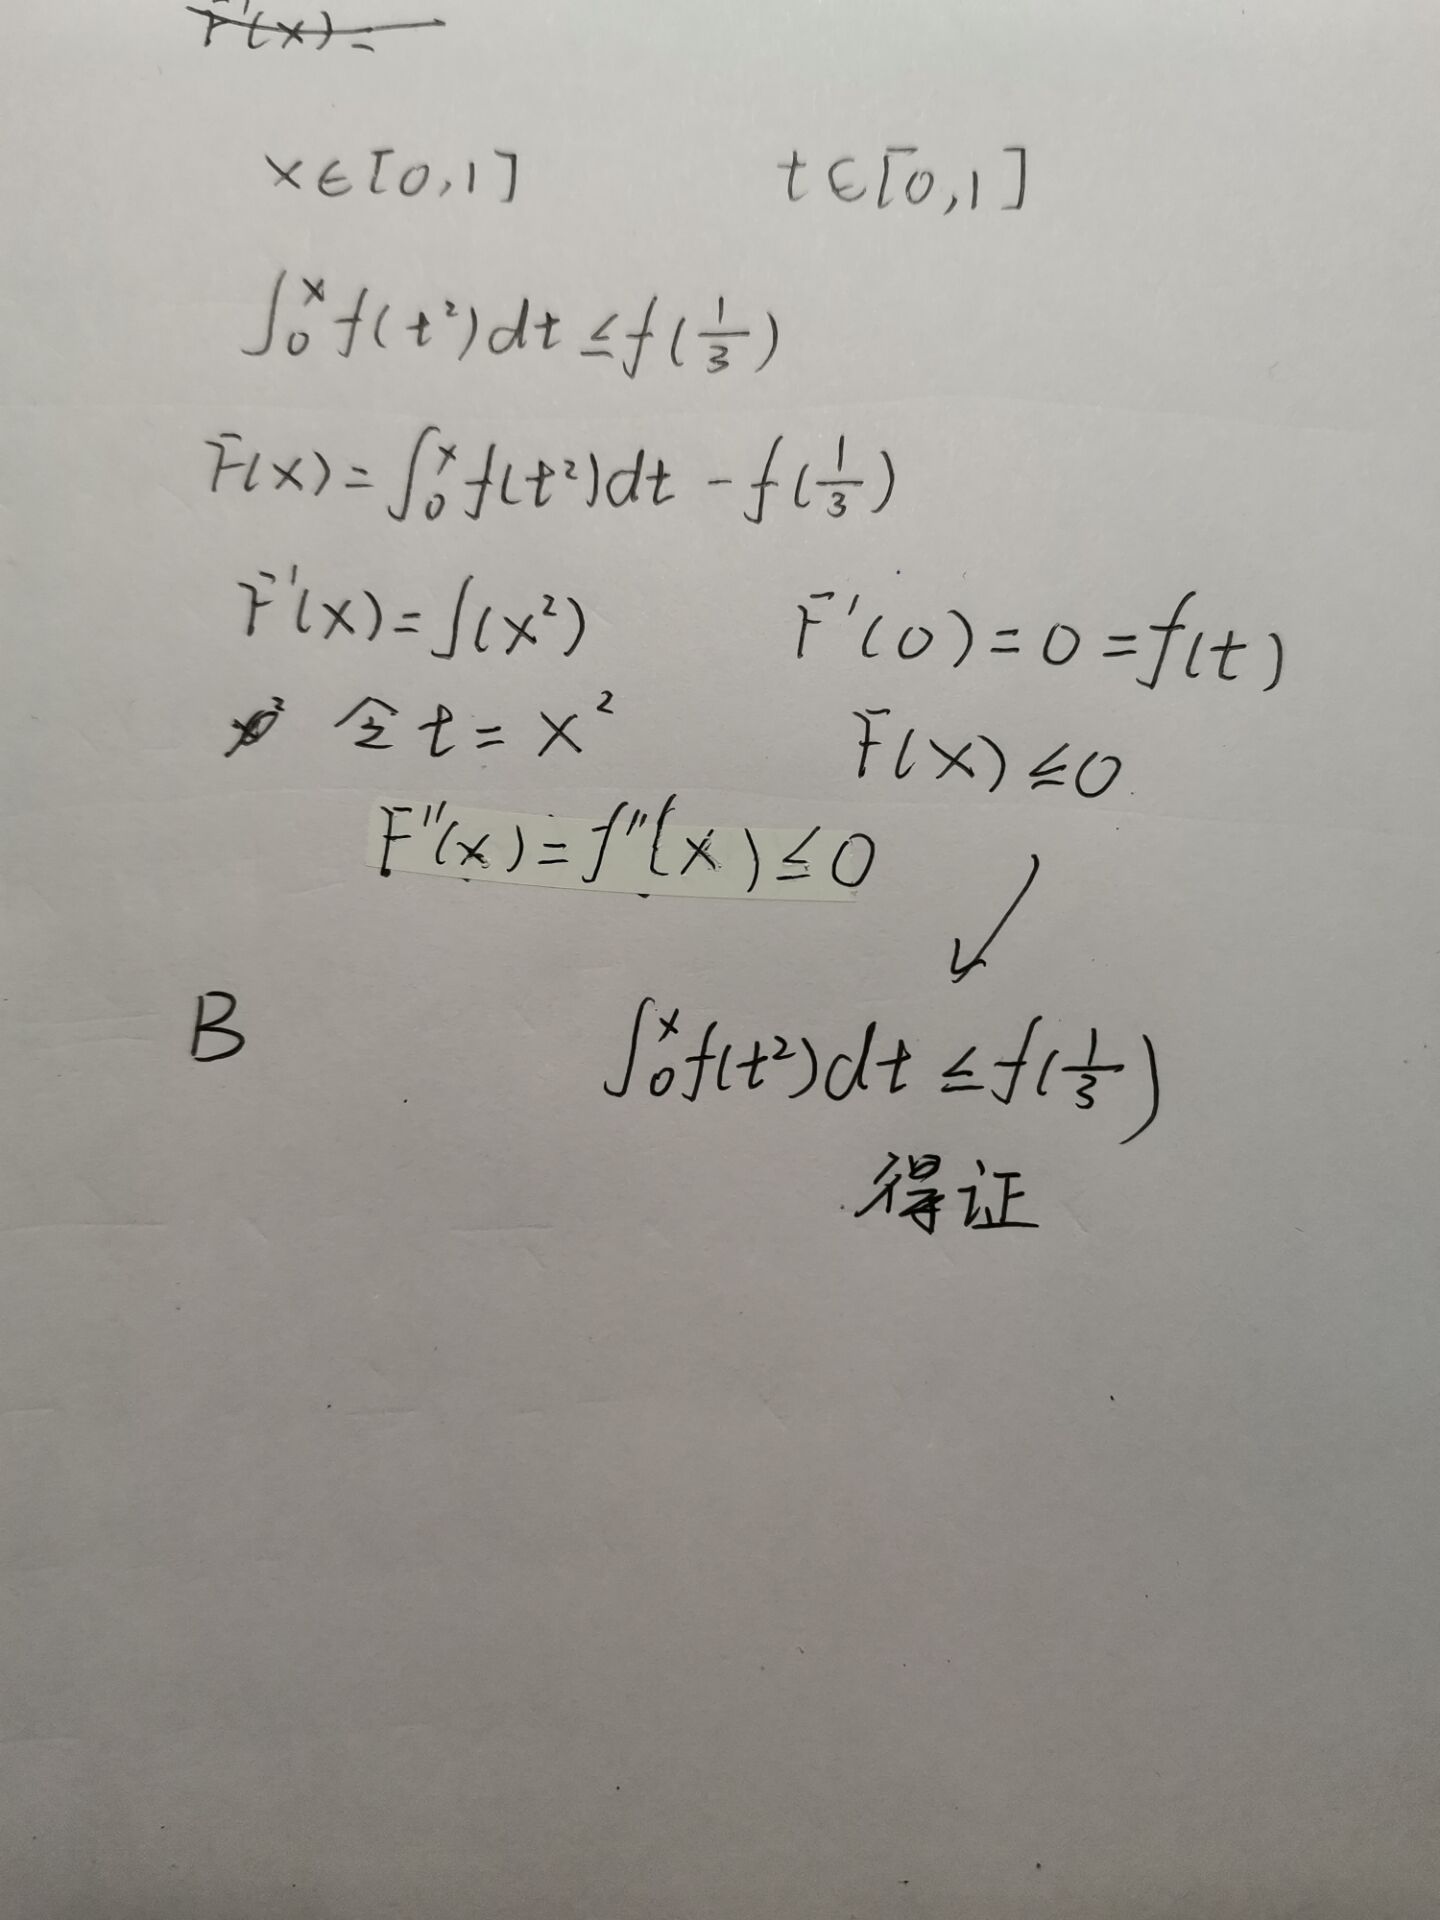 F'(x)=
x∈[0,1] t∈[0,1]
∫₀ˣ f(t²)dt ≤ f(1/3)
F(x)=∫₀ˣ f(t²)dt - f(1/3)
F'(x)=∫(x²) F'(0)=0=f(t)
令 t=x² F(x)≤0
F''(x)=f''(x)≤0
B ∫₀ˣ f(t²)dt ≤ f(1/3)
得证